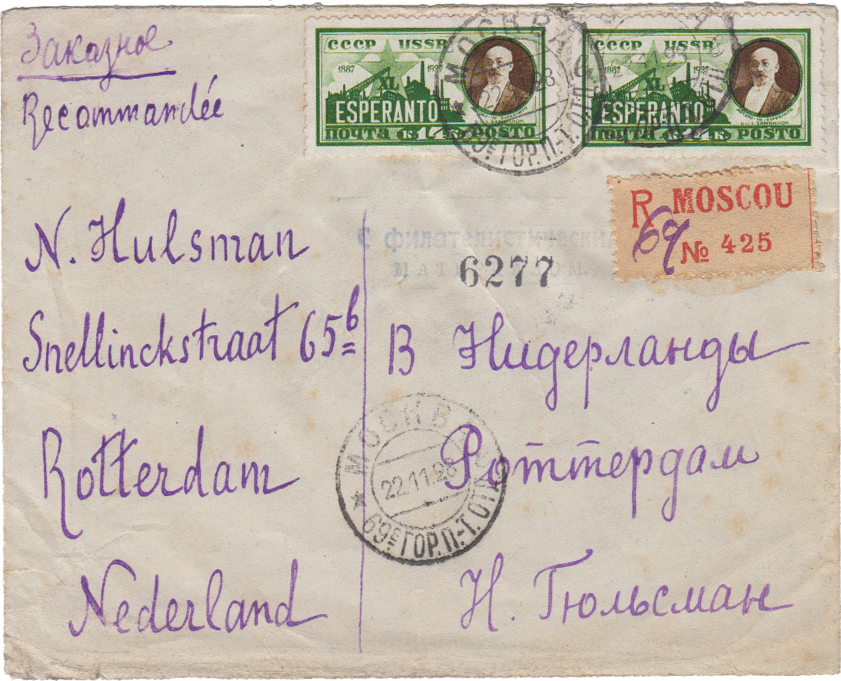 Заказное
Recommandée
СССР USSR
1887 1927
ESPERANTO
ПОЧТА 14 POSTO
СССР USSR
1887
ESPERANTO
ПОЧТА 14 POSTO
МОСКВА
69е ГОР.П.-Т.ОТД
R MOSCOU
69 № 425
С филателистическим
6277
N. Hulsman
Snellinckstraat 65b
Rotterdam
Nederland
В Нидерланды
Роттердам
Н. Гюльсман
МОСКВА
22.11.28
69е ГОР.П.-Т.ОТД